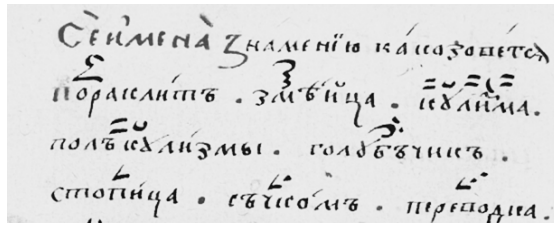 Сѐ и҆мена̀ знамені́ю ка́ко зове́тсѧ
пораклитъ . змѣ́ица . кꙋли́ма .
полъкꙋли́змы . голꙋ́бъчикъ .
стопи́ца . съчко́мъ . переводка .